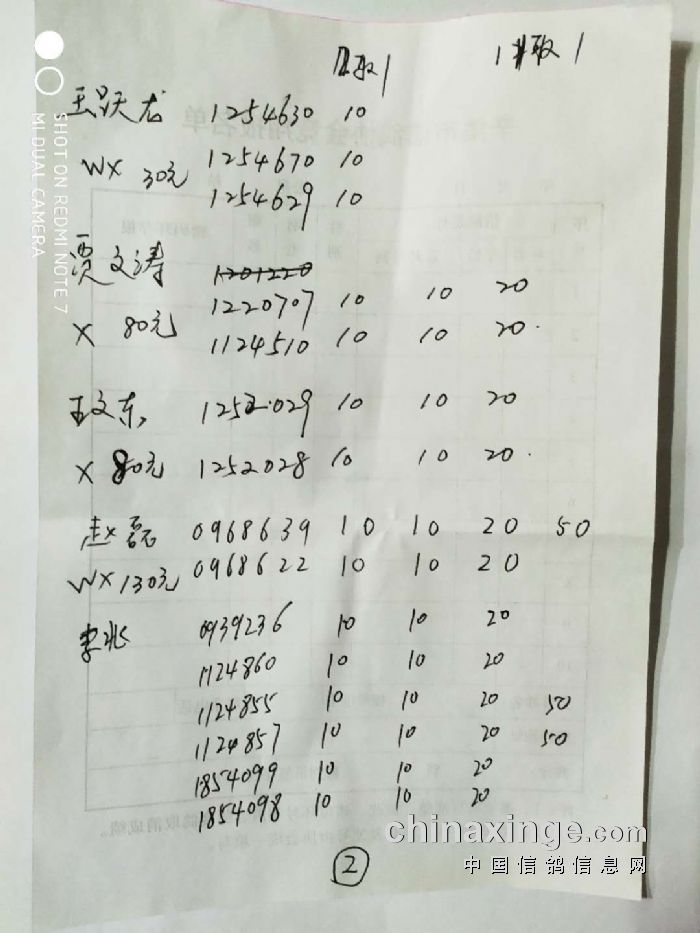 取1 1#取1
王跃龙 1254630 10
WX 30元 1254670 10
1254629 10
贾文涛 1201220
1220707 10 10 20
X 80元 1124510 10 10 20.
王文东, 1252.029 10 10 20
X 80元 1252028 10 10 20.
赵X磊 0968639 10 10 20 50
WX130元 0968622 10 10 20
李兆 0939236 10 10 20
1124860 10 10 20
1124855 10 10 20 50
1124857 10 10 20 50
1854099 10 10 20
1854098 10 10 20
2
SHOT ON REDMI NOTE 7
MI DUAL CAMERA
chinaxinge.com
中国信鸽信息网